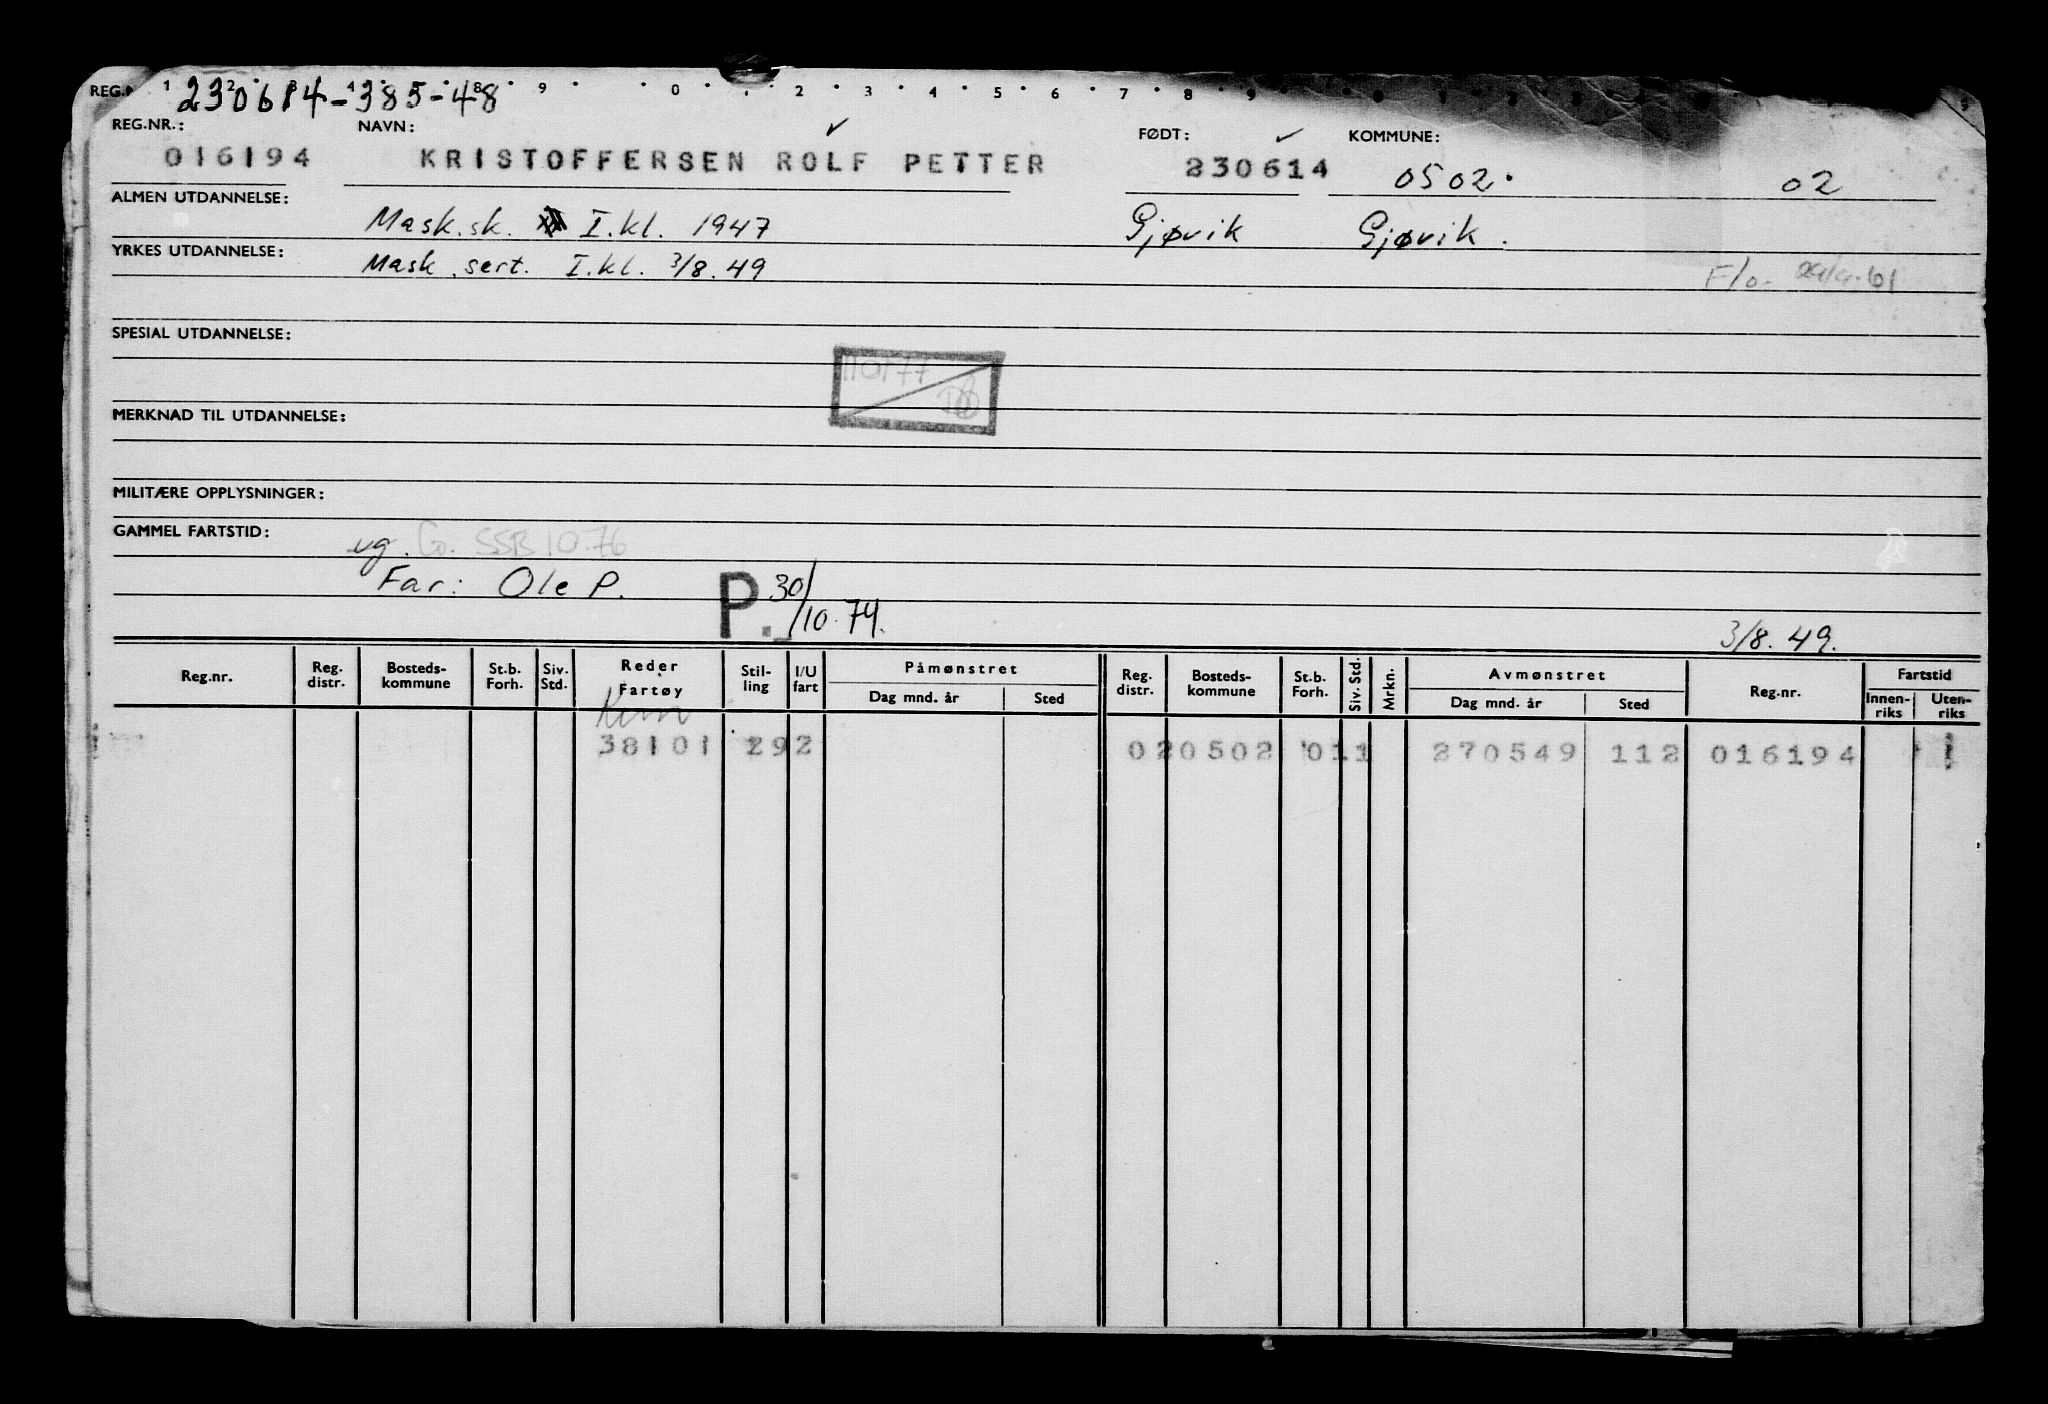 REG.N 230614-385-48
1 2 9 0 2 3 4 5 6 7 8 9
REG.NR.: NAVN: FØDT: KOMMUNE:
016194 KRISTOFFERSEN ROLF PETTER 230614 0502. 02
ALMEN UTDANNELSE: Mask.sk. I.kl. 1947 Gjøvik Gjøvik.
YRKES UTDANNELSE: Mask. sert. I.kl. 3/8.49
SPESIAL UTDANNELSE:
110177
MERKNAD TIL UTDANNELSE:
MILITÆRE OPPLYSNINGER:
GAMMEL FARTSTID: ug. SSB 10.76
Far: Ole P. P. 30/10.74.
3/8.49.
Reg.nr. Reg. distr. Bosteds-kommune St.b. Forh. Siv. Std. Reder Fartøy Stil-ling I/U fart Påmønstret Dag mnd. år Sted Reg. distr. Bosteds-kommune St.b. Forh. Siv. Std. Mrkn. Avmønstret Dag mnd. år Sted Reg.nr. Fartstid Innen-riks Uten-riks
38101 292 020502 011 270549 112 016194 1